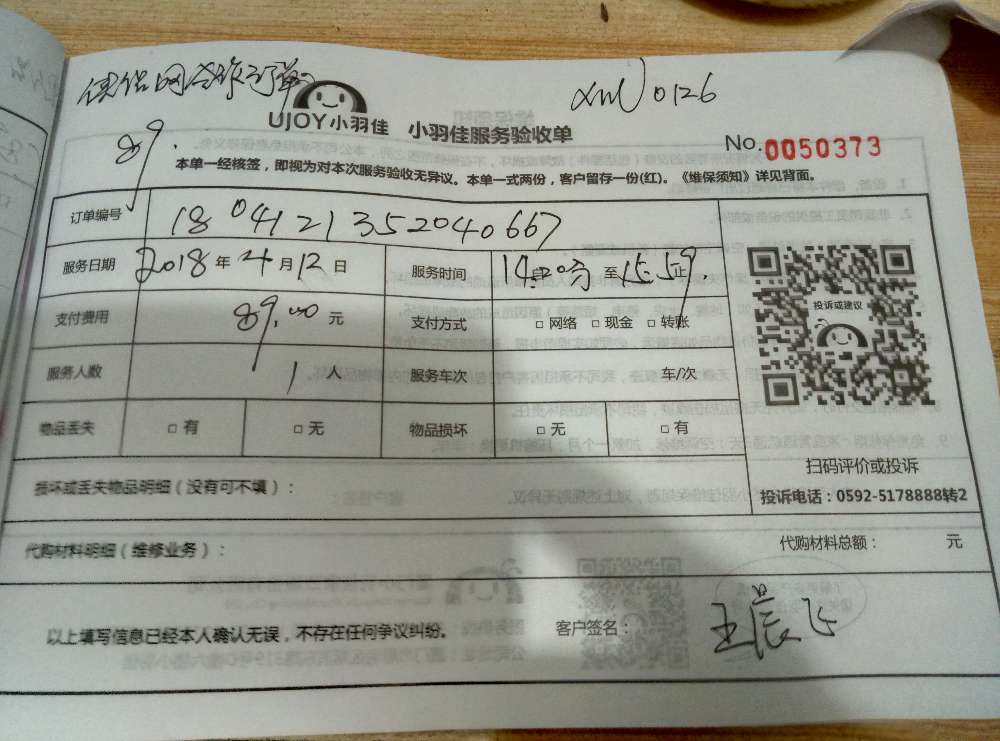 优保网合作订单 xmU0126
UJOY小羽佳 小羽佳服务验收单
89. No.0050373
本单一经核签，即视为对本次服务验收无异议。本单一式两份，客户留存一份(红)。《维保须知》详见背面。
订单编号 1804121352040667
服务日期 2018年4月12日 服务时间 至15:59.
支付费用 89.00元 支付方式 □网络 □现金 □转账
投诉或建议
服务人数 1人 服务车次 车/次
物品丢失 □有 □无 物品损坏 □无 □有
扫码评价或投诉
损坏或丢失物品明细（没有可不填）：
投诉电话：0592-5178888转2
代购材料明细（维修业务）： 代购材料总额： 元
以上填写信息已经本人确认无误，不存在任何争议纠纷。 客户签名： 王晨飞